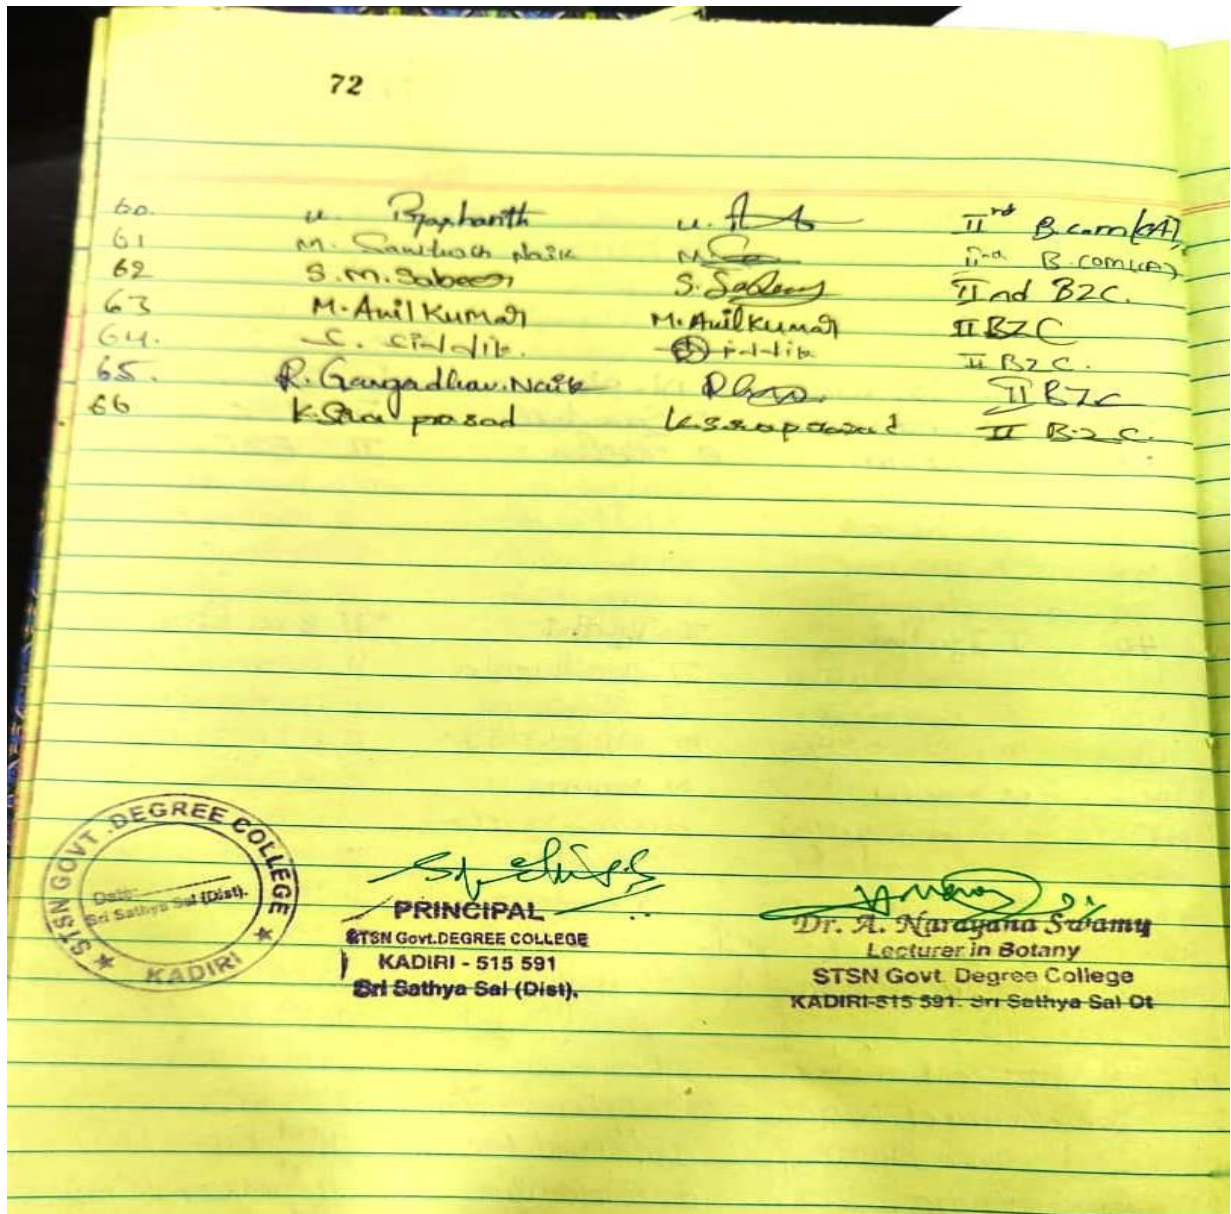 72
60. U. Prashanth U. IInd B.com(CA)
61 M. Santhosh Naik M. IInd B.com(CA)
62 S.M.Sabeer S. Sabeer IInd BZC.
63 M.Anil Kumar M.Anil Kumar II BZC
64. S. Siddik. Siddik II BZC.
65. R. Gangadhar.Naik II BZC
66 K.Sai prasad K.Sai prasad II B.Z.C.
STSN GOVT. DEGREE COLLEGE
Date:
Sri Sathya Sai (Dist).
KADIRI
PRINCIPAL
STSN Govt.DEGREE COLLEGE
KADIRI - 515 591
Sri Sathya Sai (Dist),
Dr. A. Narayana Swamy
Lecturer in Botany
STSN Govt. Degree College
KADIRI-515 591. Sri Sathya Sai Dt